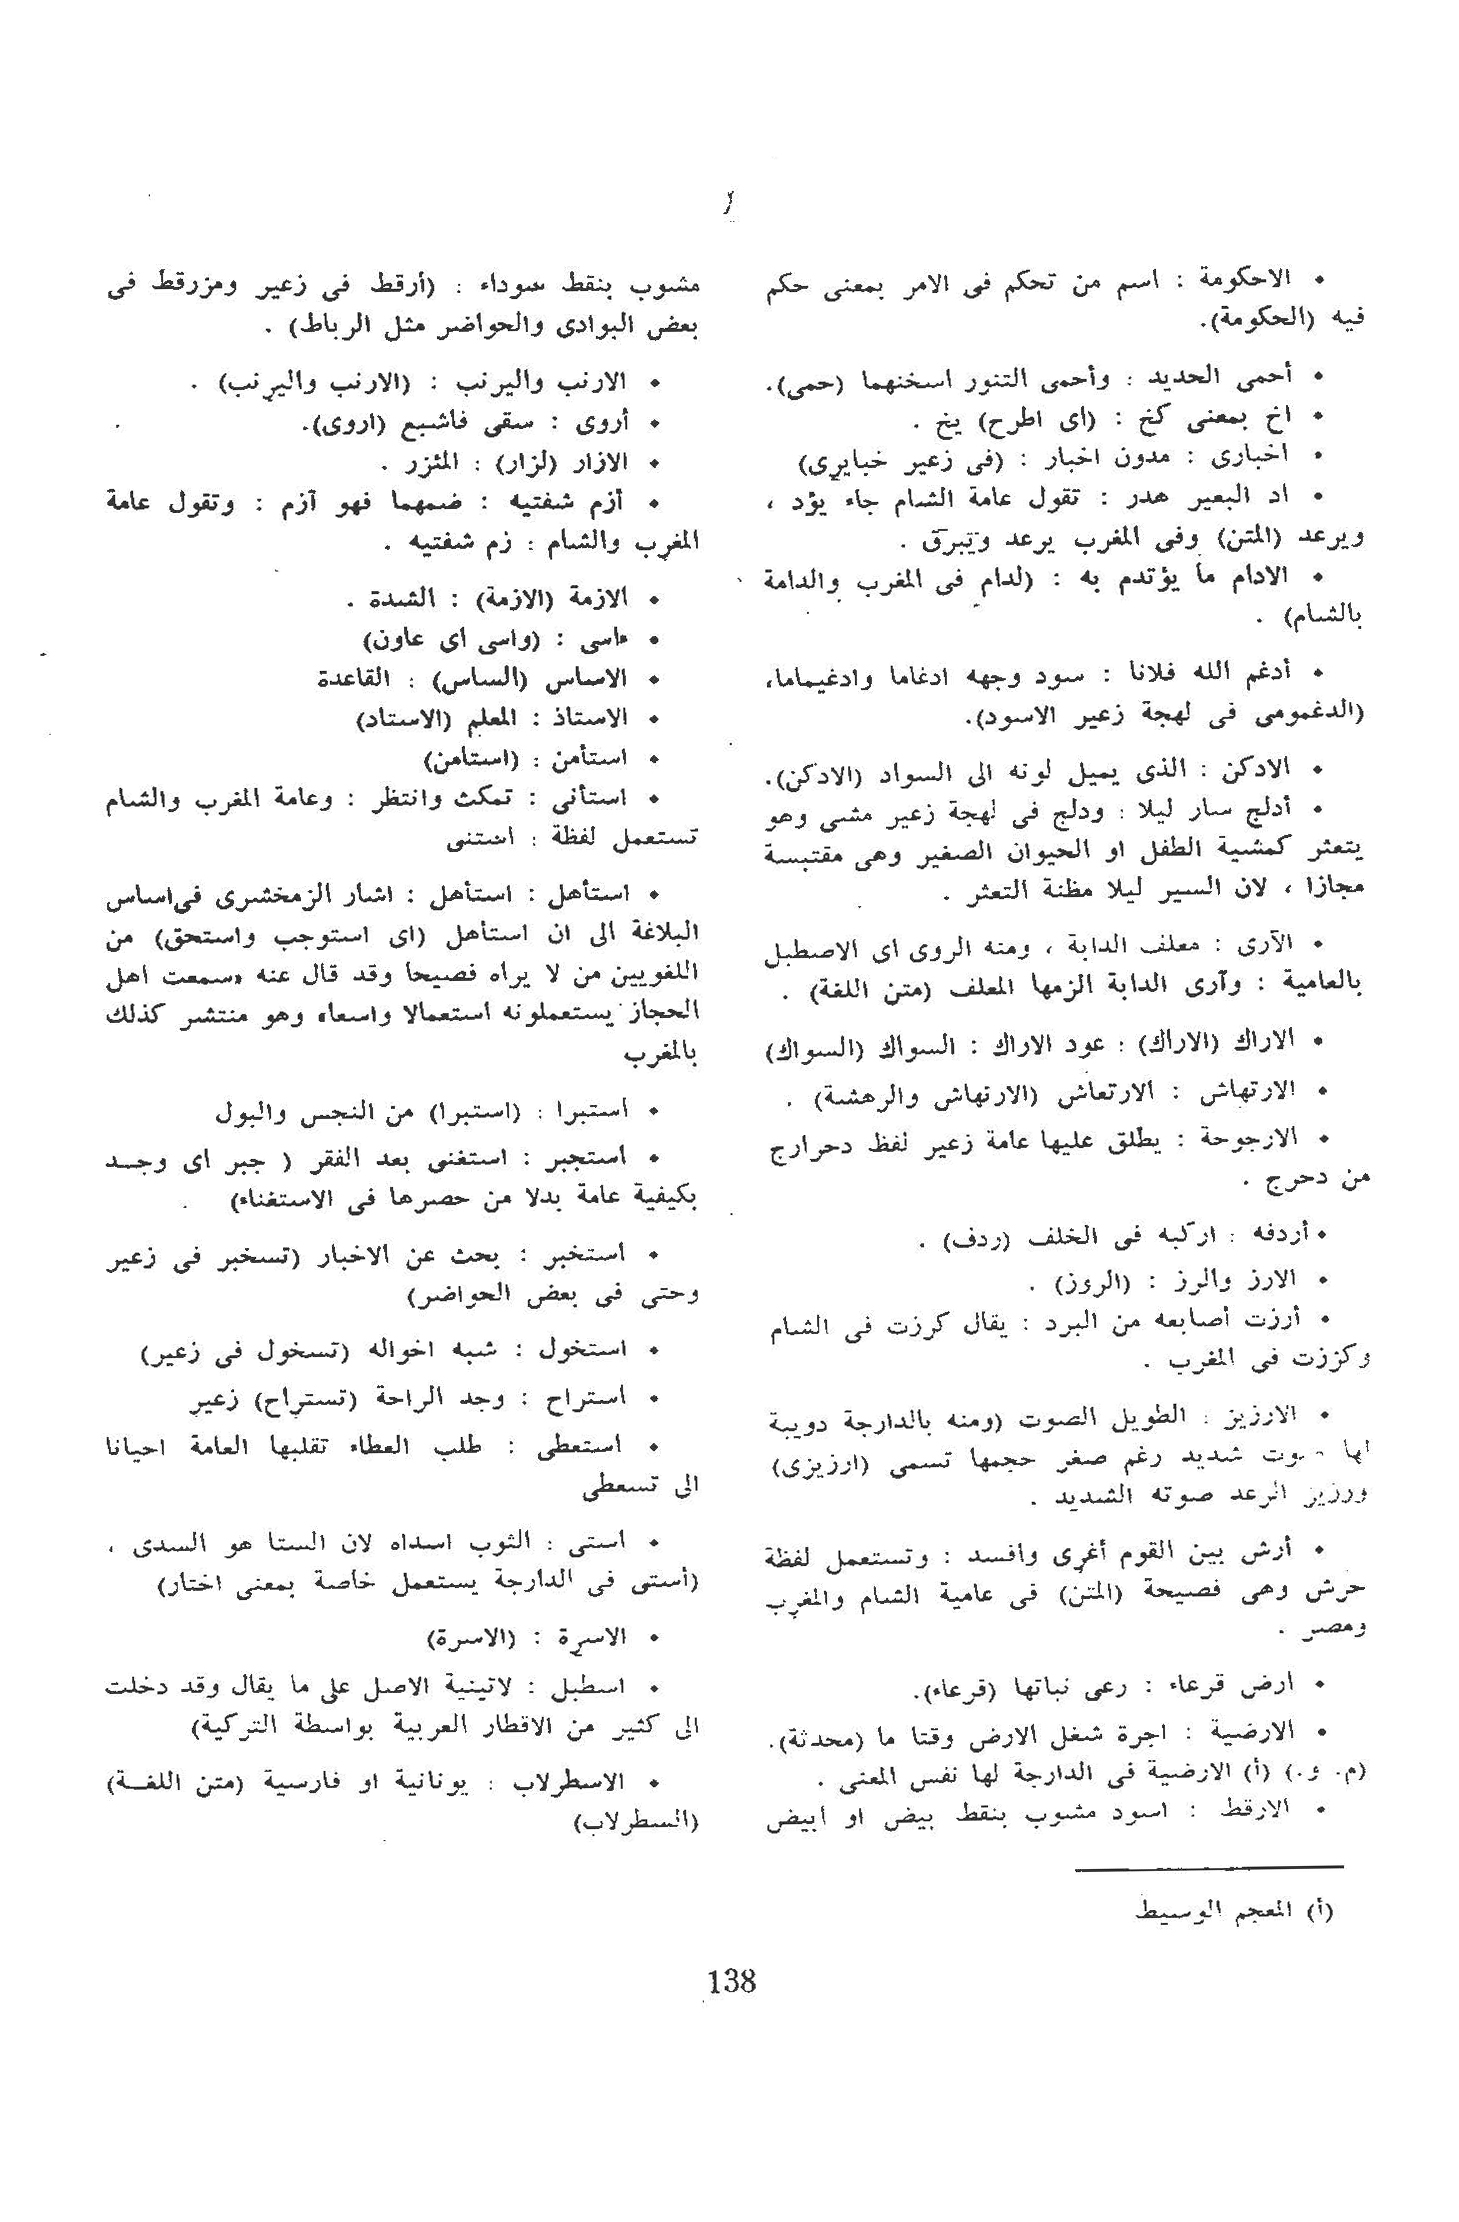 • الاحكومة : اسم من تحكم فى الامر بمعنى حكم
فيه (الحكومة).
• أحمى الحديد : وأحمى التنور اسخنهما (حمى).
• اخ بمعنى كخ : (اى اطرح) يخ .
• اخبارى : مدون اخبار : (فى زعير خبايرى)
• اد البعير هدر : تقول عامة الشام جاء يؤد ،
ويرعد (المتن) وفى المغرب يرعد وتبرق .
• الادام ما يؤتدم به : (لدام فى المغرب والدامة
بالشام) .
• أدغم الله فلانا : سود وجهه ادغاما وادغيماما،
(الدغمومى فى لهجة زعير الاسود).
• الادكن : الذى يميل لونه الى السواد (الادكن).
• أدلج سار ليلا : ودلج فى لهجة زعير مشى وهو
يتعثر كمشية الطفل او الحيوان الصغير وهى مقتبسة
مجازا ، لان السير ليلا مظنة التعثر .
• الآرى : معلف الدابة ، ومنه الروى اى الاصطبل
بالعامية : وآرى الدابة الزمها المعلف (متن اللغة) .
• الاراك (الاراك) : عود الاراك : السواك (السواك)
• الارتهاش : الارتعاش (الارتهاش والرهشة) .
• الارجوحة : يطلق عليها عامة زعير لفظ دحرارج
من دحرج .
• أردفه : اركبه فى الخلف (ردف) .
• الارز والرز : (الروز) .
• أرزت أصابعه من البرد : يقال كرزت فى الشام
وكززت فى المغرب .
• الارزيز : الطويل الصوت (ومنه بالدارجة دويبة
لها صوت شديد رغم صغر حجمها تسمى (ارزيزى)
ورزيز الرعد صوته الشديد .
• أرش بين القوم أغرى وافسد : وتستعمل لفظة
حرش وهى فصيحة (المتن) فى عامية الشام والمغرب
ومصر .
• ارض قرعاء : رعى نباتها (قرعاء).
• الارضية : اجرة شغل الارض وقتا ما (محدثة).
(م. و.) (أ) الارضية فى الدارجة لها نفس المعنى .
• الارقط : اسود مشوب بنقط بيض او ابيض
مشوب بنقط سوداء : (أرقط فى زعير ومزرقط فى
بعض البوادى والحواضر مثل الرباط) .
• الارنب واليرنب : (الارنب واليرنب) .
• أروى : سقى فاشبع (اروى).
• الازار (لزار) : المئزر .
• أزم شفتيه : ضمهما فهو آزم : وتقول عامة
المغرب والشام : زم شفتيه .
• الازمة (الازمة) : الشدة .
• ءاسى : (واسى اى عاون)
• الاساس (الساس) : القاعدة
• الاستاذ : المعلم (الاستاد)
• استأمن : (استامن)
• استأنى : تمكث وانتظر : وعامة المغرب والشام
تستعمل لفظة : استنى
• استأهل : استأهل : اشار الزمخشرى فى اساس
البلاغة الى ان استأهل (اى استوجب واستحق) من
اللغويين من لا يراه فصيحا وقد قال عنه «سمعت اهل
الحجاز يستعملونه استعمالا واسعا» وهو منتشر كذلك
بالمغرب
• استبرا : (استبرا) من النجس والبول
• استجبر : استغنى بعد الفقر ( جبر اى وجـد
بكيفية عامة بدلا من حصرها فى الاستغناء)
• استخبر : بحث عن الاخبار (تسخبر فى زعير
وحتى فى بعض الحواضر)
• استخول : شبه اخواله (تسخول فى زعير)
• استراح : وجد الراحة (تستراح) زعير
• استعطى : طلب العطاء تقلبها العامة احيانا
الى تسعطى
• استى : الثوب اسداه لان الستا هو السدى ،
(أستى فى الدارجة يستعمل خاصة بمعنى اختار)
• الاسرة : (الاسرة)
• اسطبل : لاتينية الاصل على ما يقال وقد دخلت
الى كثير من الاقطار العربية بواسطة التركية)
• الاسطرلاب : يونانية او فارسية (متن اللغـة)
(السطرلاب)
(أ) المعجم الوسيط
138